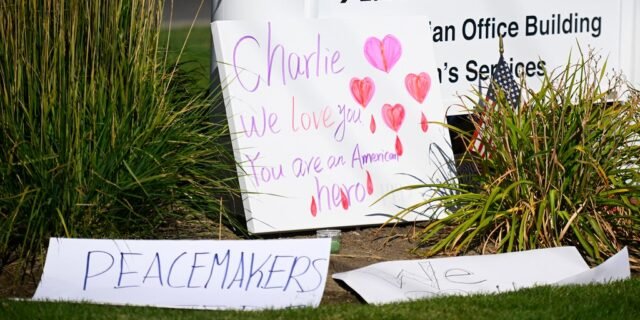 ian Office Building
n's Services
Charlie
We love you
You are an American
hero
PEACEMAKERS
We